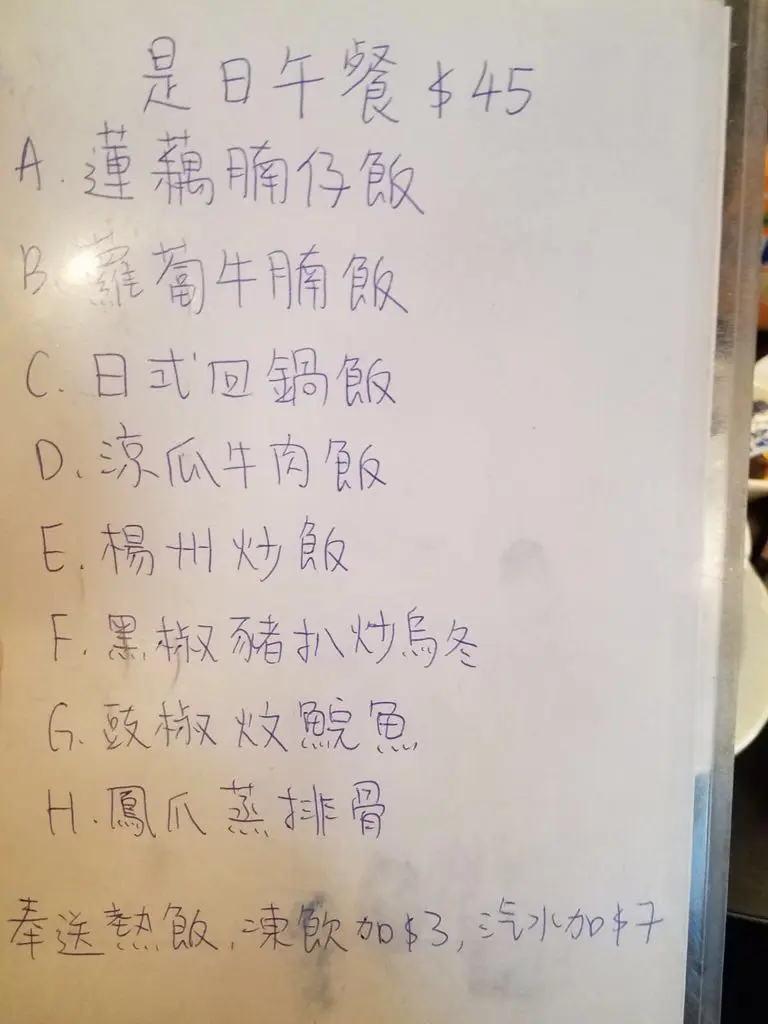 是日午餐 $45
A. 蓮藕腩仔飯
B. 蘿蔔牛腩飯
C. 日式回鍋飯
D. 涼瓜牛肉飯
E. 楊州炒飯
F. 黑椒豬扒炒烏冬
G. 豉椒炆鯇魚
H. 鳳爪蒸排骨
奉送熱飯, 凍飲加$3, 汽水加$7